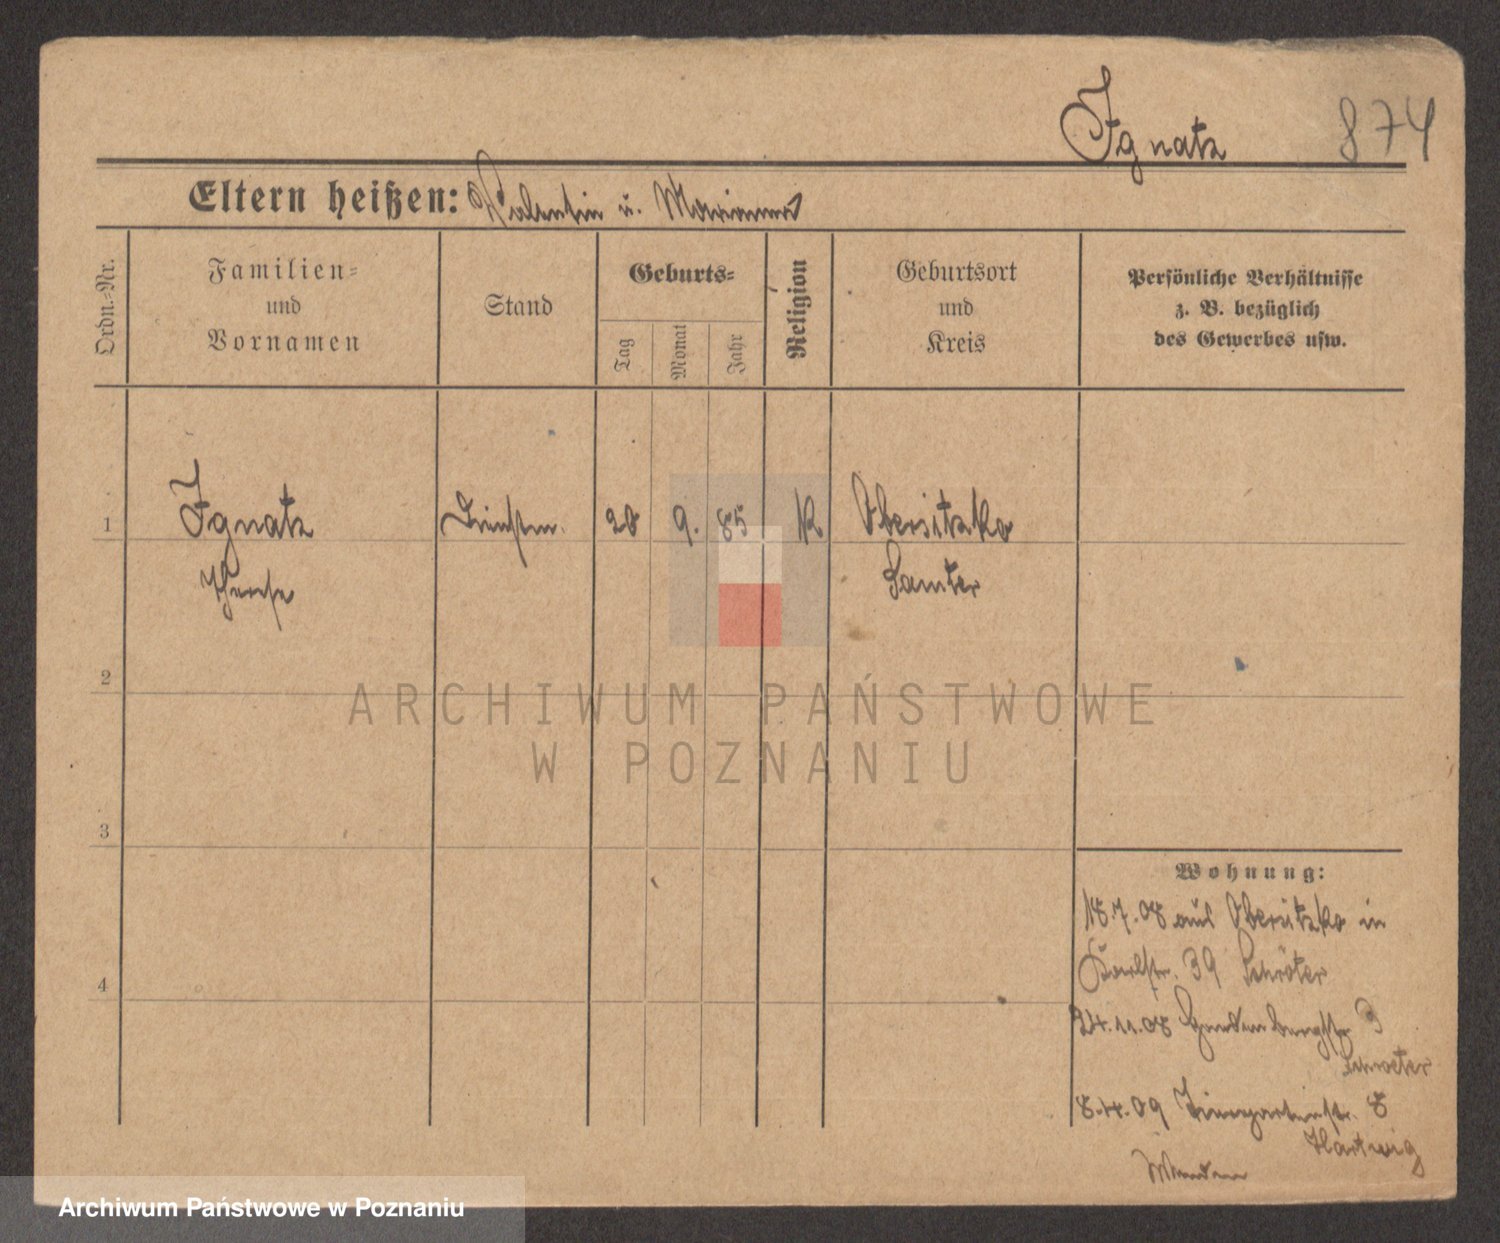 Ignatz 874
Eltern heißen: Valentin u. Marianna
Ordn.-Nr.
Familien-
und
Vornamen
Stand
Geburts-
Tag
Monat
Jahr
Religion
Geburtsort
und
Kreis
Persönliche Verhältnisse
z. B. bezüglich
des Gewerbes usw.
1 Ignatz 28 9. 85 K Obersitzko
Samter
2
ARCHIWUM PAŃSTWOWE
W POZNANIU
3
Wohnung:
18.7.08 aus Obersitzko in
Karlstr. 39 Schröter
4
24.11.08 3
Schroeter
8.4.09 Tiergartenstr. 8
Hartwig
Wenden
Archiwum Państwowe w Poznaniu